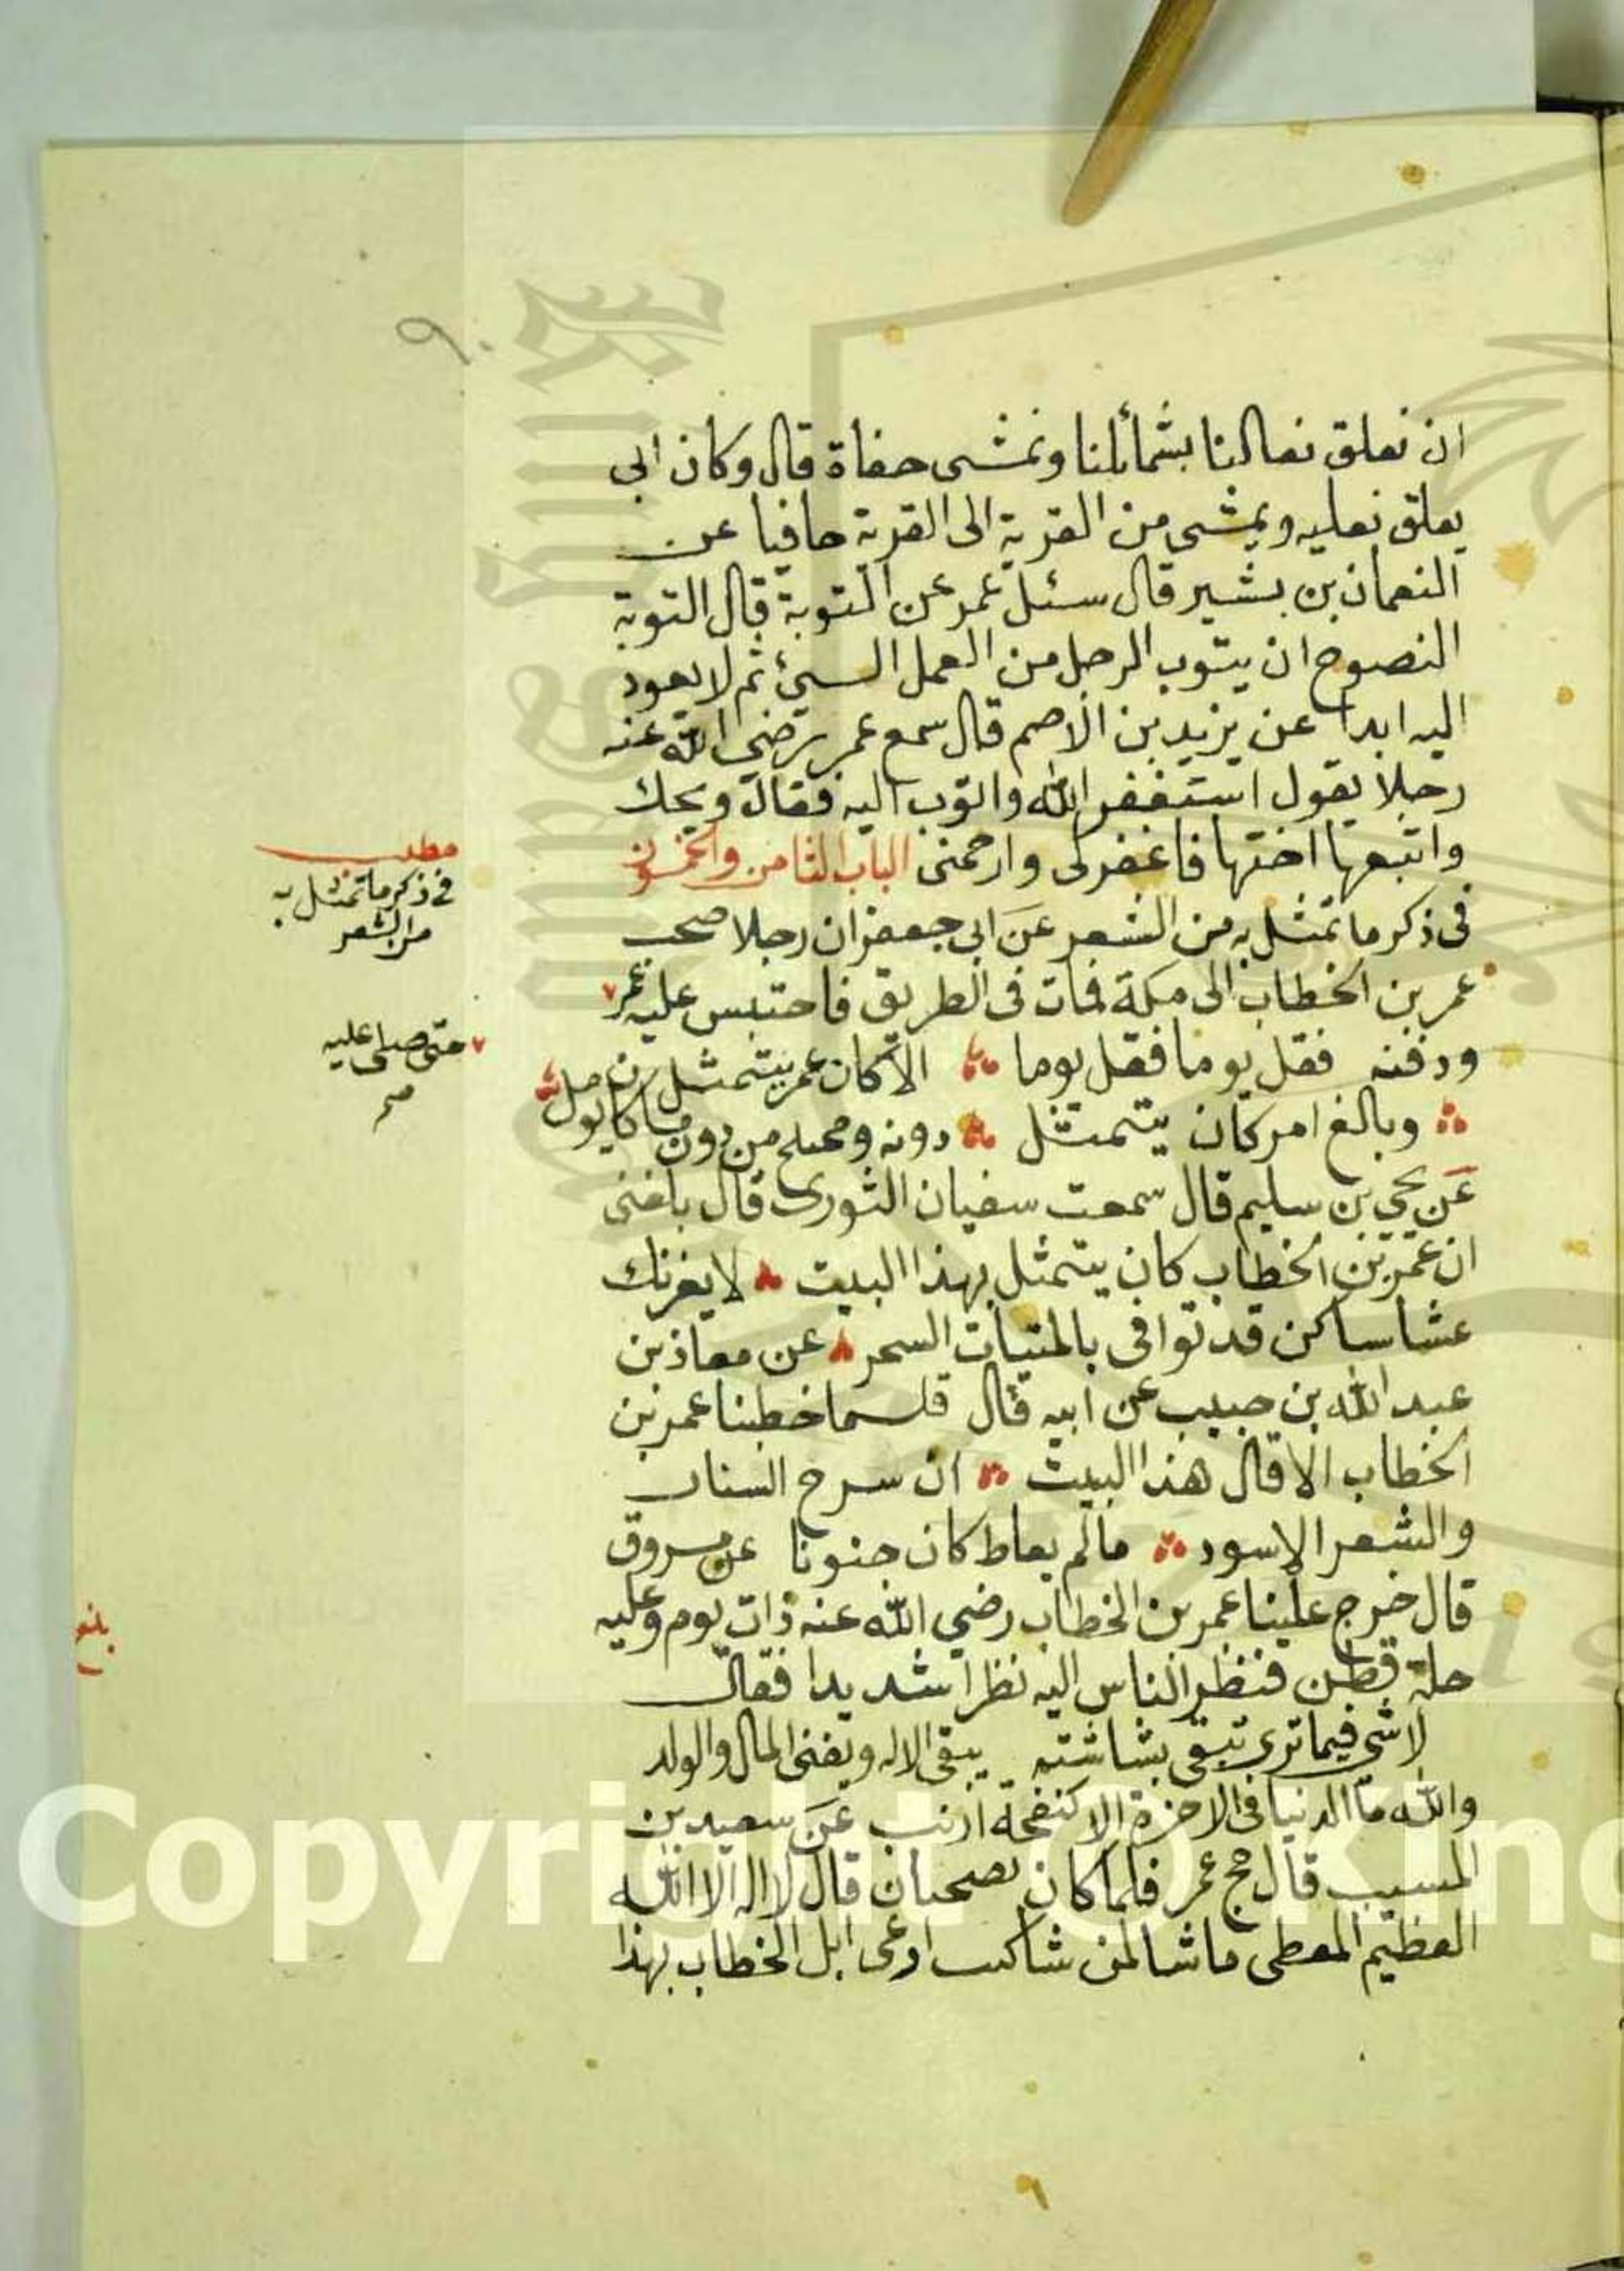 ٩٠
ان نعلق نعالنا بشمائلنا ونمشى حفاة قال وكان ابي
يعلق نعليه ويمشى من القرية الى القرية حافيا عن
النعمان بن بشير قال سئل عمر عن التوبة قال التوبة
النصوح ان يتوب الرجل من العمل السيئ ثم لا يعود
اليه ابدا عن يزيد بن الاصم قال سمع عمر رضي الله عنه
رجلا يقول استغفر الله واتوب اليه فقال ويحك
واتبعها اختها فاغفرلى وارحمنى الباب الثامن والخمسون
فى ذكر ما تمثل به من الشعر عن ابي جعفر ان رجلا صحب
عمر بن الخطاب الى مكة فمات فى الطريق فاحتبس عليه عمر
ودفنه فقل يوما فقل يوما الا كان عمر يتمثل
وبالغ امر كان يتمثل دونه ومحتلج من دون ما كان يومل
عن يحيى بن سليم قال سمعت سفيان الثورى قال بلغنى
ان عمر بن الخطاب كان يتمثل بهذا البيت لا يغرنك
عشا ساكن قد توافى بالمتيات السحر عن معاذ بن
عبد الله بن حبيب عن ابيه قال قلما خطبنا عمر بن
الخطاب الا قال هذا البيت ان سرح الشباب
والشعر الاسود مالم يعاط كان جنونا عن مسروق
قال خرج علينا عمر بن الخطاب رضي الله عنه ذات يوم وعليه
حلة قطن فنظر الناس اليه نظرا شديدا فقال
لا شى فيما ترى تبقى بشاشته يبقى الاله ويفنى المال والولد
والله ما الدنيا فى الاخرة الا كنفجة ارنب عن سعيد بن
المسيب قال حج عمر فلما كان بضجنان قال لا اله الا الله
العظيم المعطى ما شا لمن شا كنت ارعى ابل الخطاب بهذا
مطلب
في ذكر ما تمثل به
من الشعر
حتى صلى عليه
صح
بلغ
Copyright © King